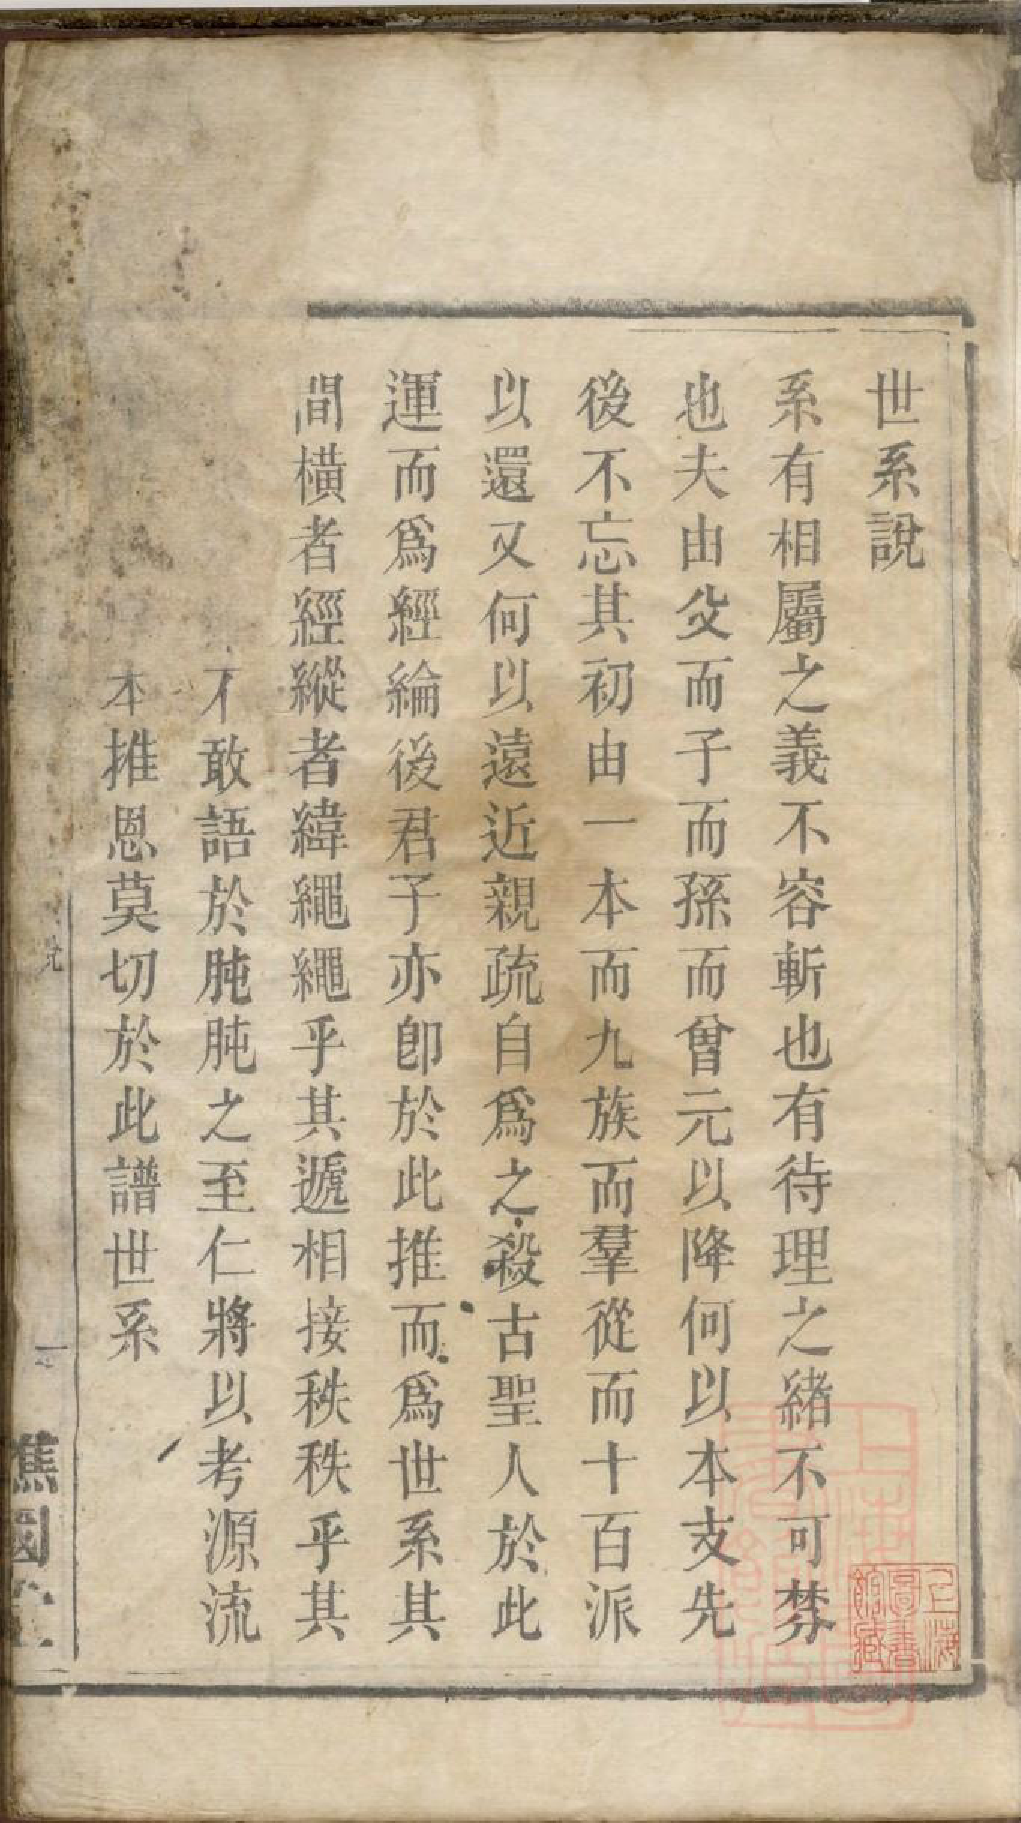 世系說
系有相屬之義不容斬也有待理之緒不可棼
也夫由父而子而孫而曾元以降何以本支先
後不忘其初由一本而九族而羣從而十百派
以還又何以遠近親疏自爲之殺古聖人於此
運而爲經綸後君子亦卽於此推而爲世系其
間橫者經縱者緯繩繩乎其遞相接秩秩乎其
才敢語於肫肫之至仁將以考源流
本推恩莫切於此譜世系
一
譙國堂
上海圖書館藏
上海圖書館藏